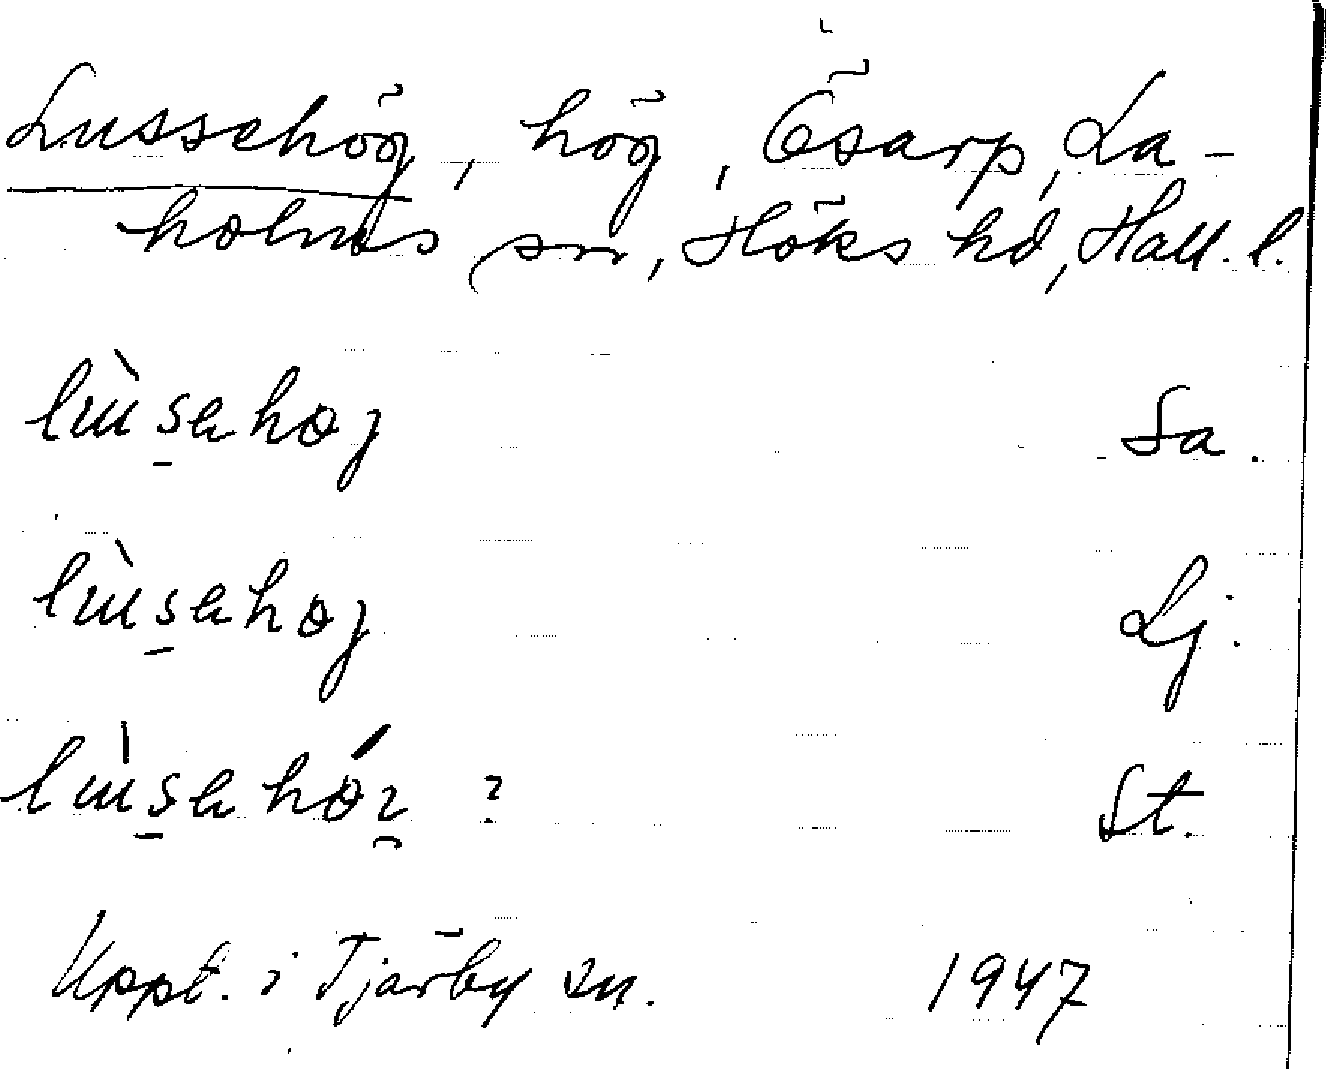 Lussehög, hög, Ösarp, La-
holms sn, Höks hd, Hall. l.
lùsa̱høj Sa.
lùsa̱høj Lj.
lùsa̱hǿi̯ ? St.
Uppt. i Tjärby sn. 1947